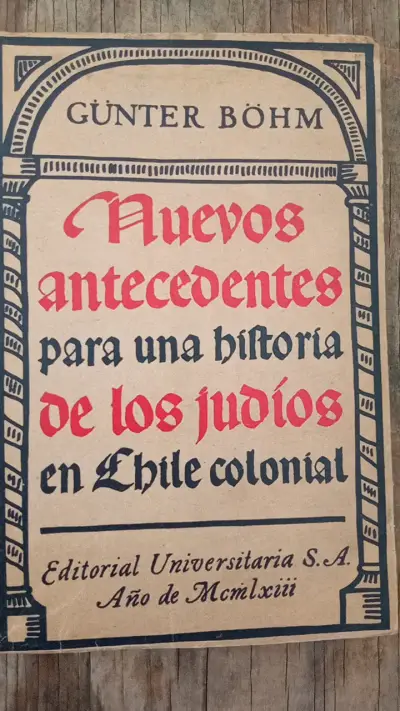 GÜNTER BÖHM
Nuevos
antecedentes
para una historia
de los judíos
en Chile colonial
Editorial Universitaria S.A.
Año de Mcmlxiii